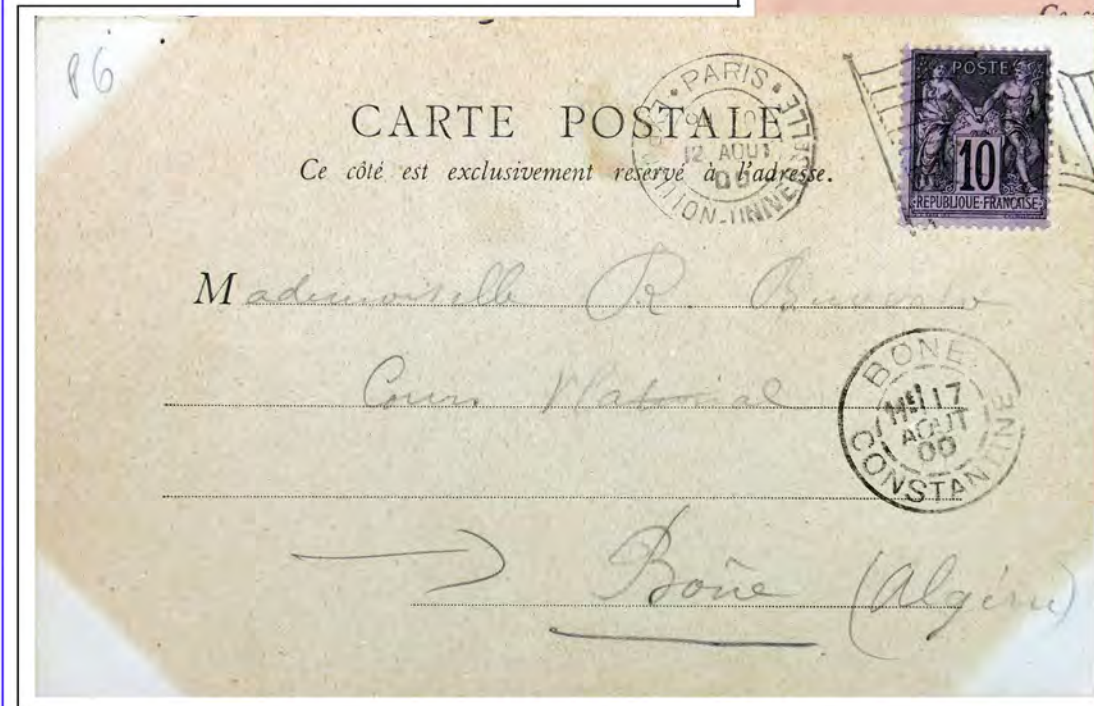 P6
CARTE POSTALE
Ce côté est exclusivement réservé à l'adresse.
PARIS
EXPOSITION-UNIVERSELLE
12 AOUT
00
POSTE
10
REPUBLIQUE FRANÇAISE
Mademoiselle R.
Cours National
BONE
17
AOUT
00
CONSTANTINE
Bône (Algérie)